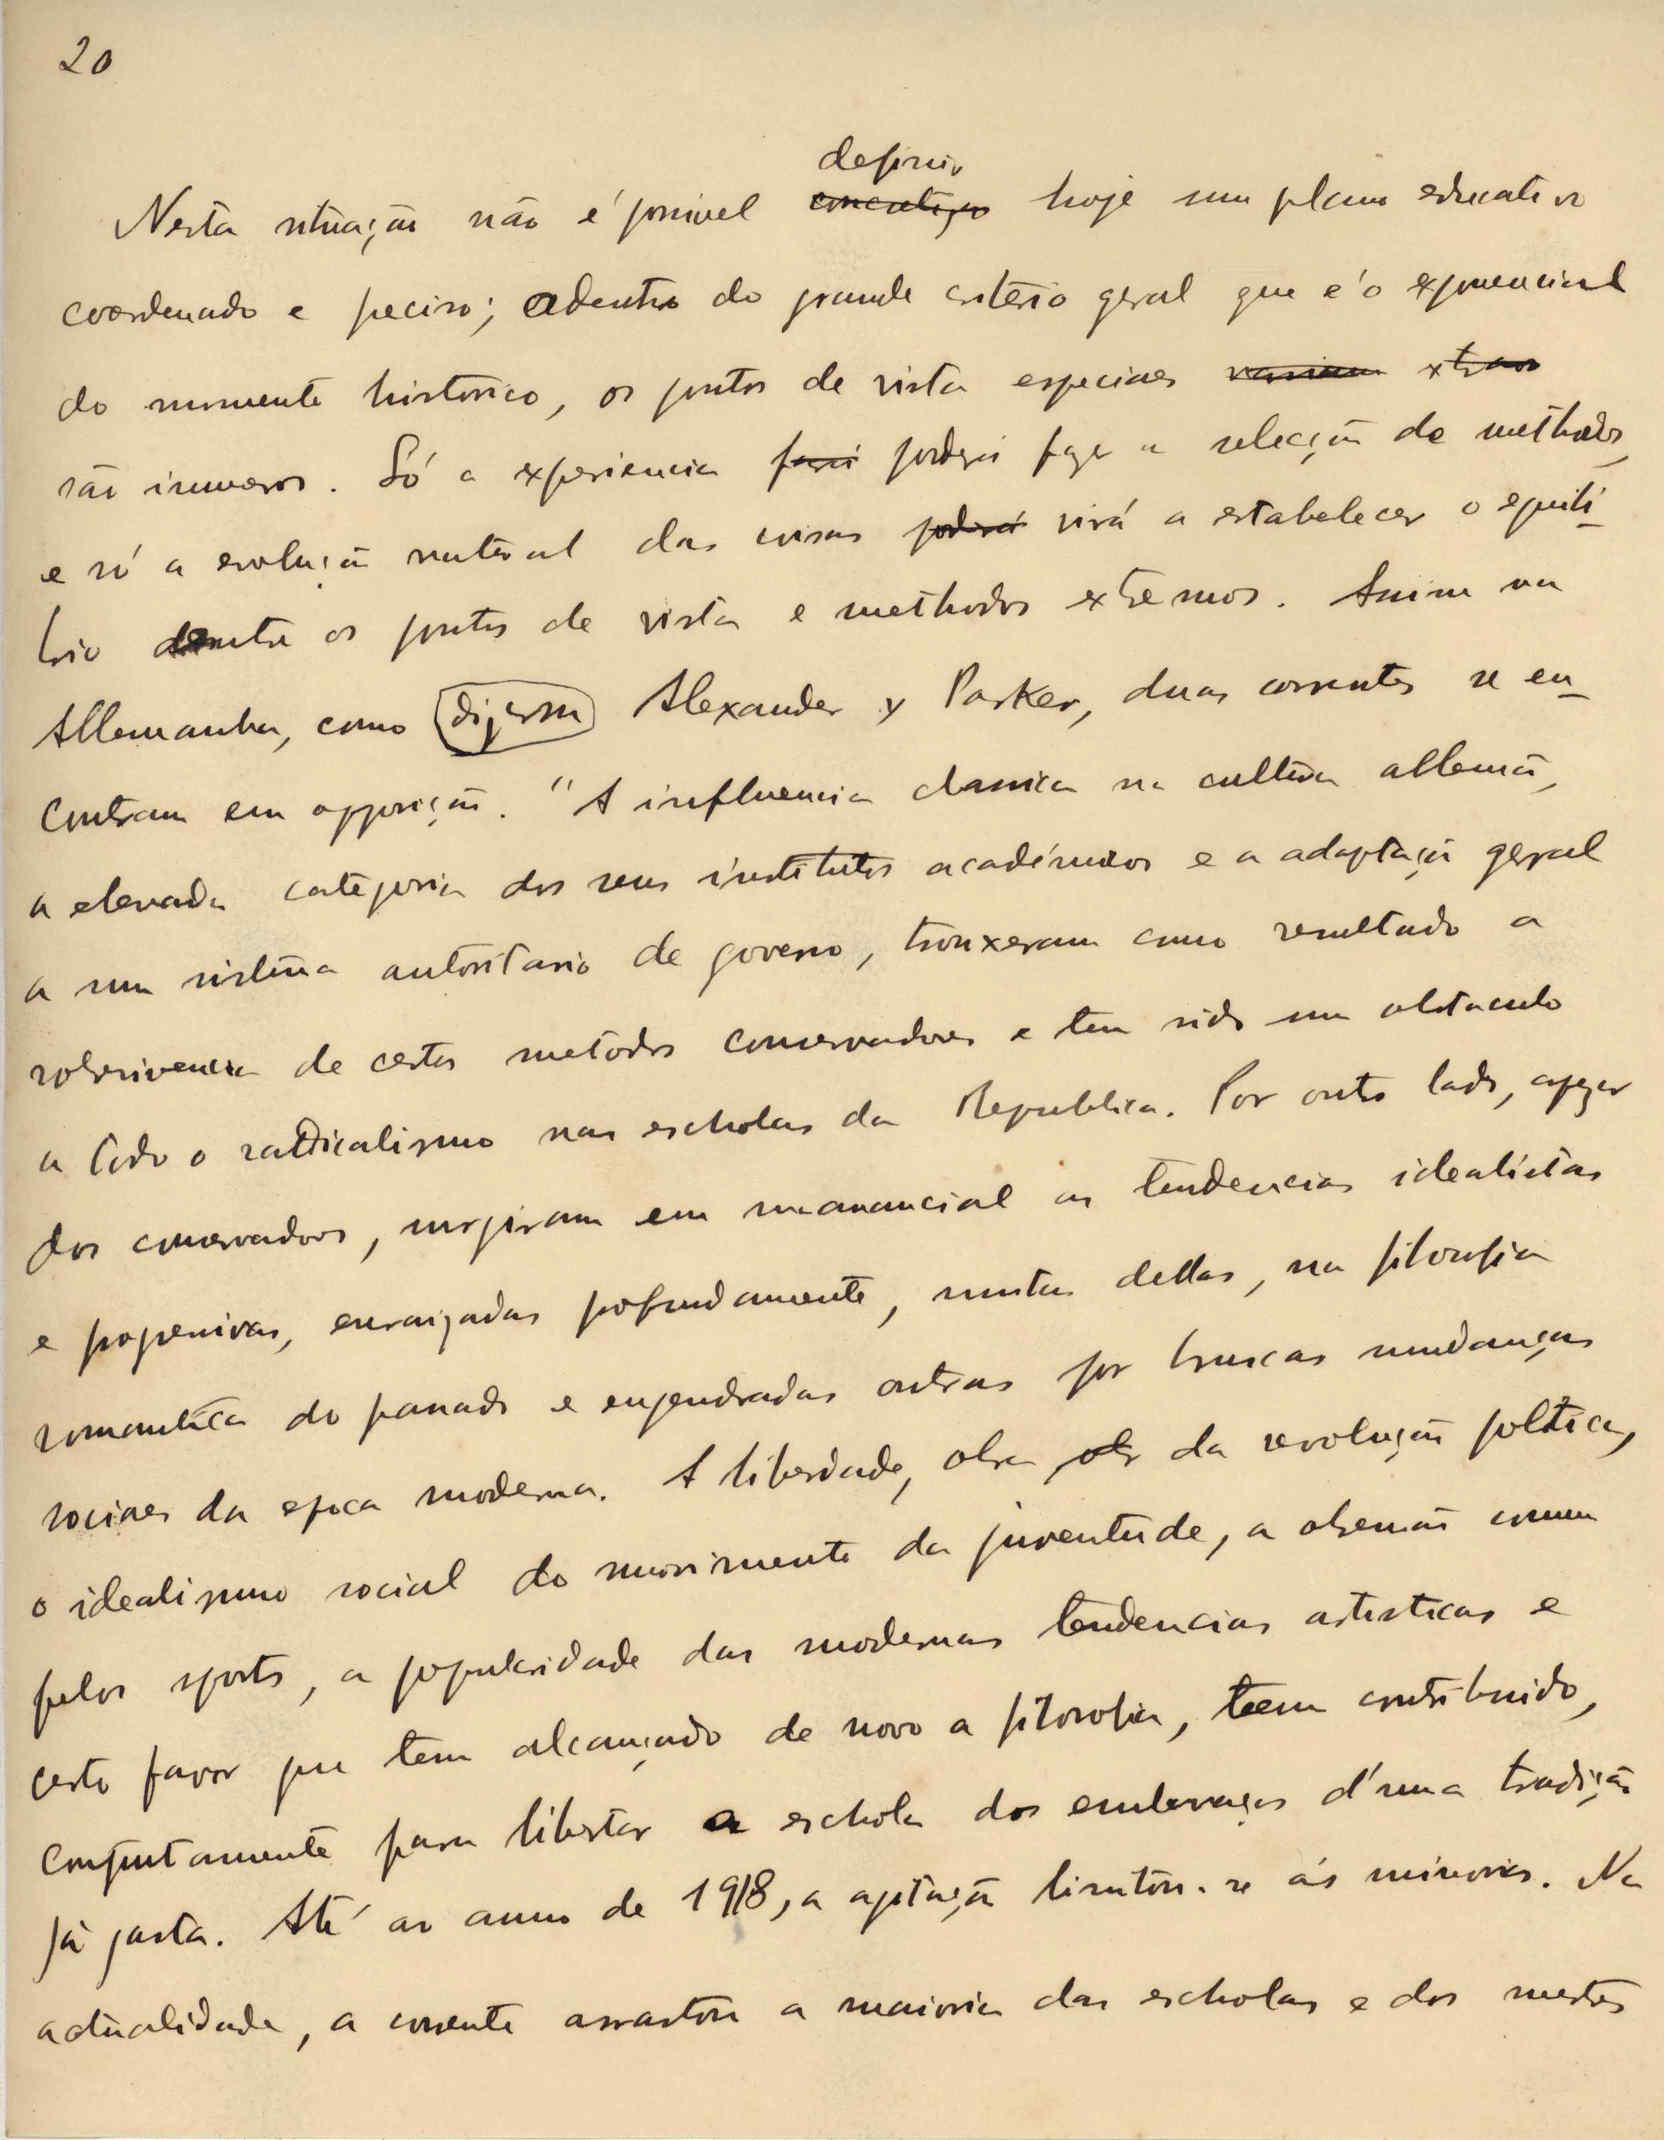 20
definir
Nesta situação não é possivel hoje um plano educativo
coordenado e preciso; adentro do grande critério geral que é o exponencial
do momento historico, os pontos de vista especiaes variam
são inumeros. Só a experiencia fará poderá fazer a selecção de methodos,
e só a evolução natural das coisas poderá virá a estabelecer o equili-
brio dentre os pontos de vista e methodos extremos. Assim na
Allemanha, como dizem Alexander y Parker, duas correntes se en-
contram em opposição. "A influencia classica na cultura allemã,
a elevada categoria dos seus institutos académicos e a adaptação geral
a um sistema autoritario de governo, trouxeram como resultado a
sobrevivencia de certos metodos conservadores e tem sido um obstaculo
a todo o radicalismo nas escholas da Republica. Por outro lado, apezar
dos conservadores, surgiram em manancial as tendencias idealistas
e progressivas, enraizadas profundamente, muitas dellas, na filosofia
romantica do passado e engendradas outras por bruscas mudanças
sociaes da epoca moderna. A liberdade, obra da revolução politica,
o idealismo social do movimento da juventude, a obsessão comum
pelos sports, a popularidade das modernas tendencias artisticas e
certo favor que tem alcançado de novo a filosofia, teem contribuido,
conjuntamente para libertar a eschola dos embaraços d'uma tradição
já gasta. Até ao anno de 1918, a agitação limitou-se ás minorias. Na
actualidade, a corrente arrastou a maioria das escholas e dos mestres